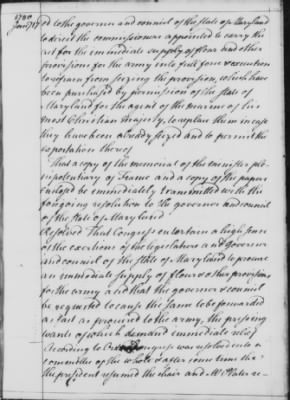 1780
Jany 17
ed to the governor and council of the state of Maryland
to direct the commissioners appointed to carry the
act for the immediate supply of flour and other
provisions for the army into full force & execution
to refrain from seizing the provision, which have
been purchased by permission of the state of
Maryland for the agent of the marine of his
most Christian Majesty, to replace them in case
they have been already seized and to permit the
exportation thereof
That a copy of the memorial of the minister plenipotentiary
of France and a copy of the paper
enclosed be immediately transmitted with the
foregoing resolution to the governor and council
of the state of Maryland
Resolved That Congress entertain a high sense
of the exertions of the legislature and governor
and council of the state of Maryland to procure
an immediate supply of flour & other provisions
for the army and that the governor & council
be requested to cause the same to be forwarded
as fast as procured to the army, the pressing
wants of which demand immediate relief
According to Order Congress was resolved into a
committee of the whole & after some time the
the president resumed the chair and Mr Plater re-